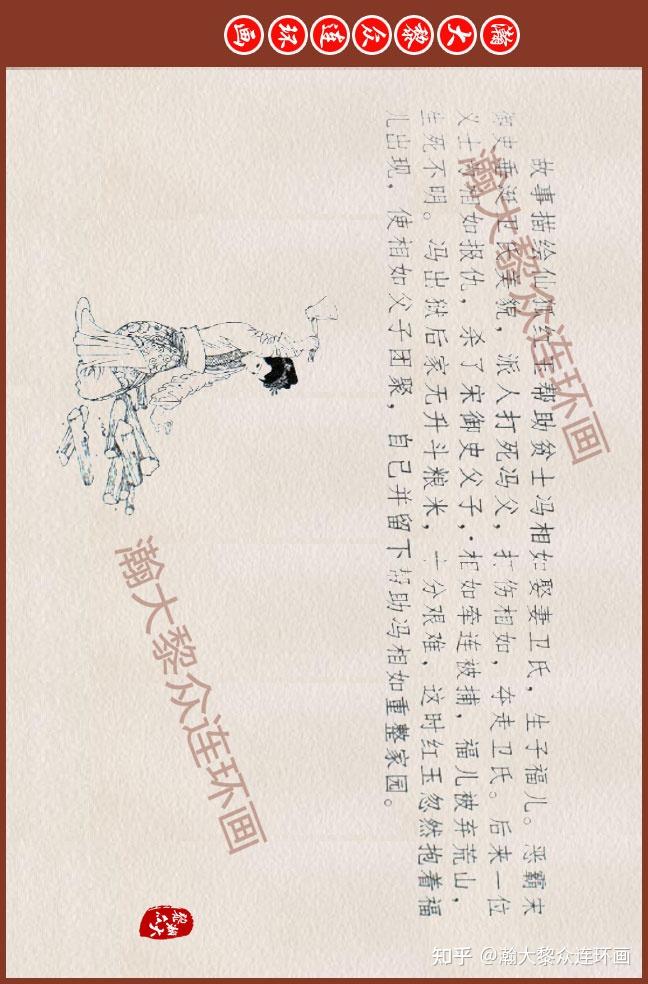 瀚大黎众连环画
故事描绘仙狐红玉帮助贫士冯相如娶妻卫氏，生子福儿。恶霸宋
御史垂涎卫氏美貌，派人打死冯父，打伤相如，夺走卫氏。后来一位
义士为相如报仇，杀了宋御史父子，相如牵连被捕，福儿被弃荒山，
生死不明。冯出狱后家无升斗粮米，十分艰难，这时红玉忽然抱着福
儿出现，使相如父子团聚，自己并留下帮助冯相如重整家园。
瀚大黎众连环画
瀚大黎众连环画
瀚大黎众
知乎 @瀚大黎众连环画